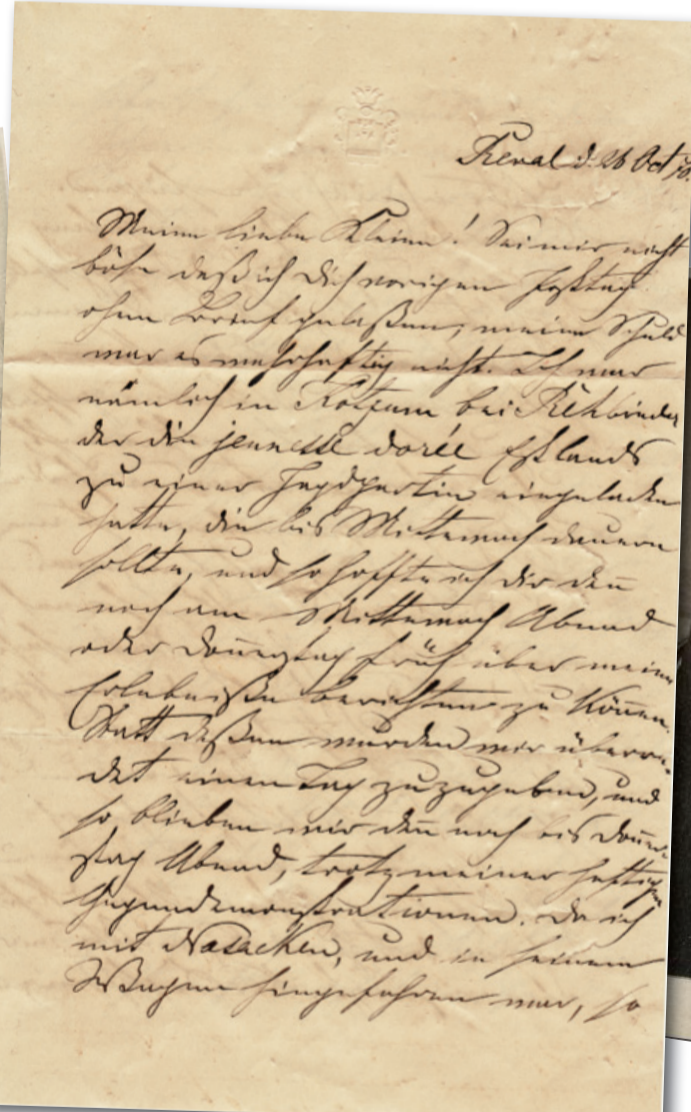 Reval d. 26 Oct 70.
Meine liebe Kleine! Sei mir nicht
böse daß ich Dich vorigen Posttag
ohne Brief gelaßen, meine Schuld
war es wahrhaftig nicht. Ich war
nämlich in bei Rehbinder
der die jeunesse dorée Estlands
zu einer Jagdpartie eingeladen
hatte, die bis Mittewoch dauern
sollte, und so hoffte ich dir den̅
noch am Mittewoch Abend
oder Don̅erstag früh über meine
Erlebniße berichten zu kön̅en.
Statt deßen wurden wir überre-
det einen Tag zuzugeben, und
so blieben wir den̅ noch bis Don̅er-
stag Abend, trotz meiner heftigen
Gegendemonstrationen. Da ich
mit Nasacken, und in seinem
Wagen hingefahren war, so